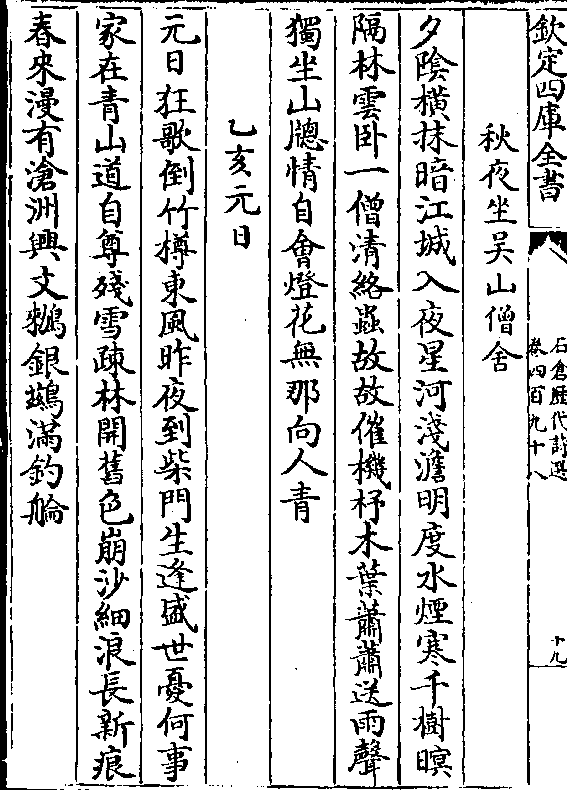 欽定四庫全書
石倉歷代詩選
卷四百九十八
十九
秋夜坐吴山僧舍
夕陰横抹暗江城入夜星河淺澹明度水煙寒千樹暝
隔林雲卧一僧清絡蟲故故催機杼木葉蕭蕭送雨聲
獨坐山牕情自會燈花無那向人青
乙亥元日
元日狂歌倒竹樽東風昨夜到柴門生逢盛世憂何事
家在青山道自尊殘雪疎林開舊色崩沙細浪長新痕
春來漫有滄洲興文鷘銀鷀滿釣艑